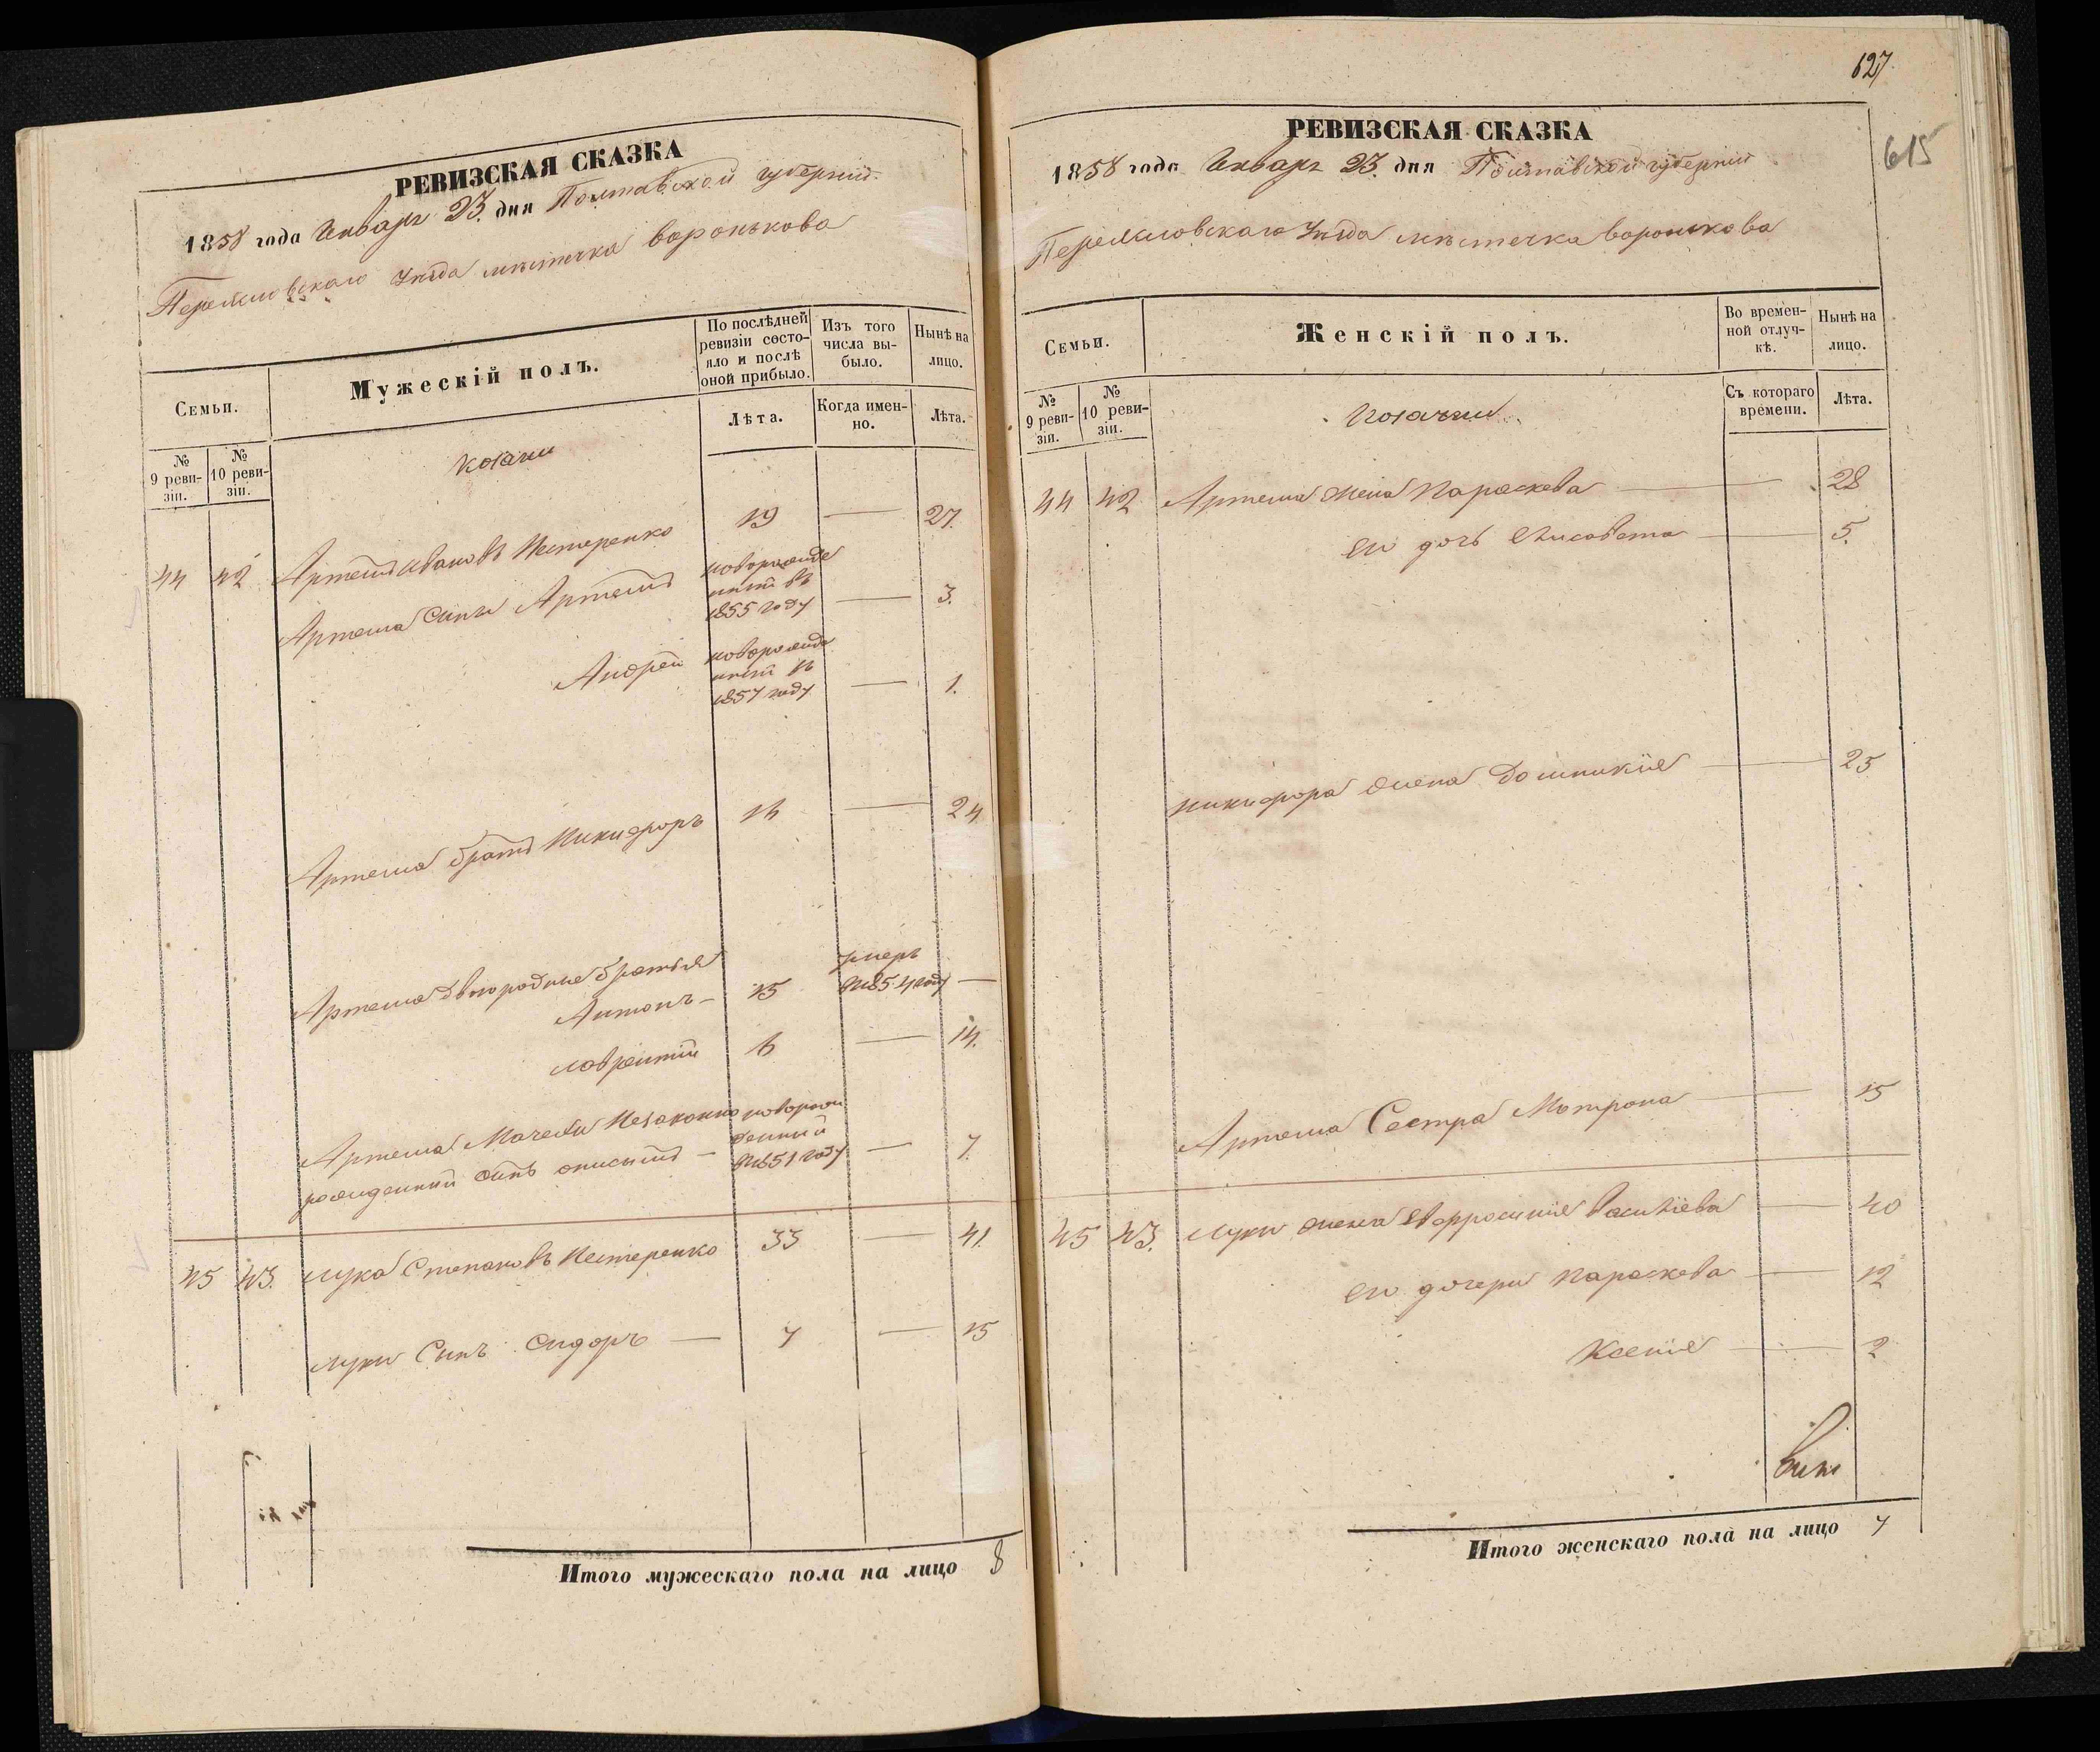 РЕВИЗСКАЯ СКАЗКА
1858 года Января 23. дня Полтавской губерніи
Переяславскаго Уѣзда мѣстечка Воронькова
Семьи.
Мужескій полъ.
По послѣдней ревизіи состояло и послѣ оной прибыло.
Изъ того числа выбыло.
Нынѣ на лицо.
№ 9 ревизіи.
№ 10 ревизіи.
Лѣта.
Когда именно.
Лѣта.
Козаки
44 42 Артемъ Ивановъ Нестеренко 19 — 27.
Артема Сынъ Артемъ новорожденный въ 1855 году — 3.
Андрей новорожденный въ 1857 году — 1.
Артема братъ Никифоръ 16 — 24
Артема двоюродные братья
Антонъ — 15 умеръ въ 1854 году —
Лаврентій 6 — 14.
Артема Мачехи Незаконно
рожденный сынъ — новорожденный въ 1851 году — 7.
45 43. Лука Степановъ Нестеренко 33 — 41.
Луки Сынъ Сидоръ — 7 — 15
Итого мужескаго пола на лицо 8
627
615
РЕВИЗСКАЯ СКАЗКА
1858 года Января 23. дня Полтавской губерніи
Переяславскаго Уѣзда мѣстечка Воронькова
Семьи.
Женскій полъ.
Во временной отлучкѣ.
Нынѣ на лицо.
№ 9 ревизіи.
№ 10 ревизіи.
Съ котораго времени.
Лѣта.
Козачки
44 42 Артема жена Параскева — 28
его дочь Елисавета — 5.
Никифора жена Домникія — 25
Артема Сестра Мотрона — 15
45 43. Луки жена Евфросинія Васильева — 40
его дочери Параскева — 12
Ксенія — 2
Итого женскаго пола на лицо 7